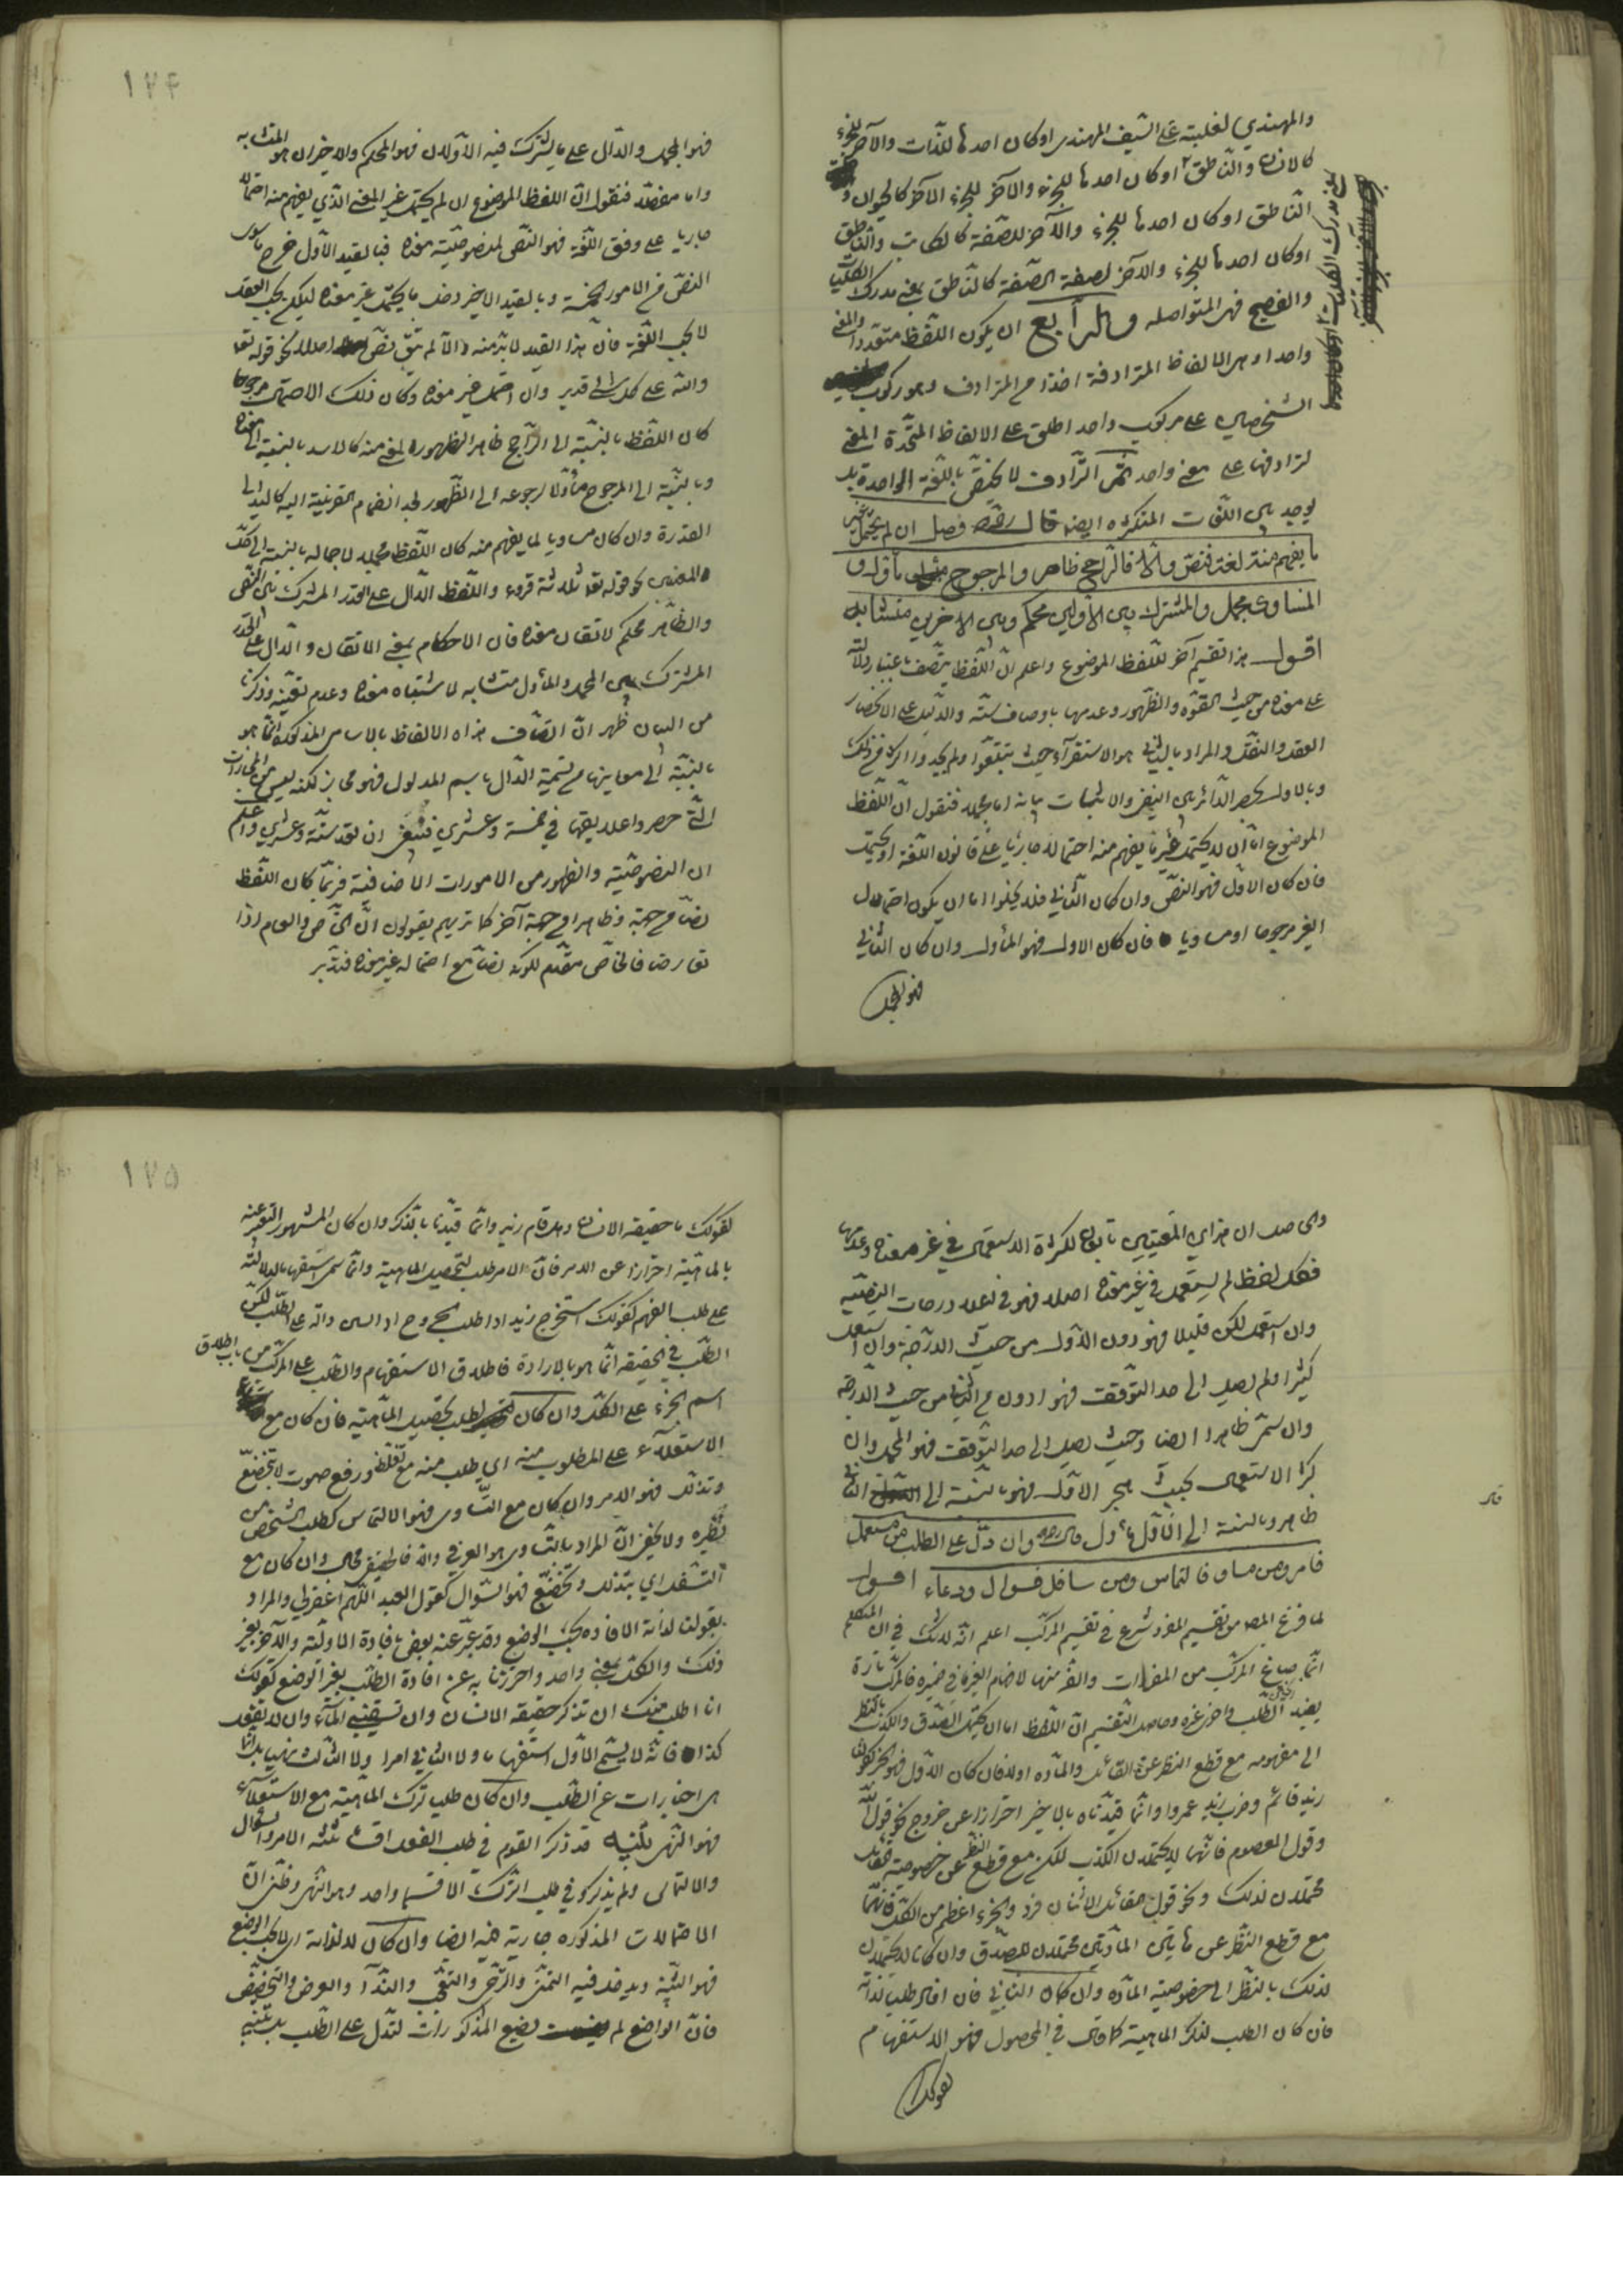 والمهندي لغلبته على السيف المهندس او كان احدهما للذات والآخر للجزء
كالانسان والناطق او كان احدهما للجزء والآخر للجزء الآخر كالحيوان و
الناطق او كان احدهما للجزء والآخر للصفة كالكاتب والناطق
او كان احدهما للجزء والآخر لصفة الصفة كالناطق بمعنى مدرك الكليات
والفصيح فهي المتواصله والرابع ان يكون اللفظ متعددا والمعنى
واحدا وهي الالفاظ المترادفة اخذا من الترادف وهو ركوب
الشخصين على مركوب واحد اطلق على الالفاظ المتحدة المعنى
لترادفها على معنى واحد ثم الترادف لا يختص باللغة الواحدة بل
يوجد بين اللغات المتكثره ايضا قال فصل ان لم يحتمل غير
ما يفهم منه لغة فنص والا فالراجح ظاهر والمرجوح مأول و
المساوى مجمل والمشترك بين الاولين محكم وبين الاخرين متشابه
اقول هذا تقسيم آخر للفظ الموضوع واعلم ان اللفظ يتصف باعتبار دلالته
على معناه من حيث القوة والظهور وعدمها باوصاف ستة والدليل على الانحصار
العقل والنقل والمراد بالثاني هو الاستقراء حيث تتبعوا ولم يجدوا اكثر من ذلك
وبالاول الحصر الدائر بين النفي والاثبات بيانه اما مجملا فنقول ان اللفظ
الموضوع اما ان لا يحتمل غير ما يفهم منه احتمالا جاريا على قانون اللغة او يحتمل
فان كان الاول فهو النص وان كان الثاني فلا يخلوا اما ان يكون احتمال
الغير مرجوحا او مساويا فان كان الاول فهو المأول وان كان الثاني
فهو المجمل
١٢٤
فهو المجمل والدال على ما يشترك فيه الاولان فهو المحكم والاخيران هو المتشابه
واما مفصلا فنقول ان اللفظ الموضوع ان لم يحتمل غير المعنى الذي يفهم منه احتمالا
جاريا على وفق اللغة فهو النص لمنصوصيته معناه فبالقيد الاول خرج ما سوى
النص من الامور الخمسة وبالقيد الاخير دخل ما يحتمل غير معناه لكن بحسب العقل
لا بحسب اللغة فان هذا القيد لا بد منه والا لم يبق نص اصلا لنحو قوله تعا
والله على كل شئ قدير وان احتمل غير معناه وكان ذلك الاحتمال مرجوحا
كان اللفظ بالنسبة الى الراجح ظاهرا لظهور المعنى منه كالاسد بالنسبة الى معناه
وبالنسبة الى المرجوح مأولا لرجوعه الى الظهور بعد انضمام القرينة اليه كاليد الى
القدرة وان كان مساويا لما يفهم منه كان اللفظ مجملا لاجماله بالنسبة الى كل
المعنيين نحو قوله تعا ثلاثة قروء واللفظ الدال على القدر المشترك بين النص
والظاهر محكم لاتقان معناه فان الاحكام بمعنى الاتقان والدال على القدر
المشترك بين المجمل والمأول متشابه لاشتباه معناه وعدم تعينه وذكرنا
من البيان ظهر ان اتصاف هذه الالفاظ بالاسامى المذكورة انما هو
بالنسبة الى معاينها من تسمية الدال باسم المدلول فهو مجاز لكنه ليس من المجازات
التي حصروا علايقها في خمسة وعشرين فينبغى ان تعد ستة وعشرين واعلم
ان النصوصية والظهور من الامورات الاضافية فربما كان اللفظ
نصا من جهة وظاهرا من جهة آخر كما تريهم يقولون ان الخاص والعام اذا
تعارضا فالخاص مقدم لكونه نصا مع احتماله غير معناه فتدبر
والحاصل ان هذين المعنيين تابعان لكثرة الاستعمال في غير معناه وعدمها
فكل لفظ لم يستعمل في غير معناه اصلا فهو في اعلا درجات النصيه
وان استعمل لكن قليلا فهو دون الاول من حيث الدرجة وان استعمل
كثيرا ولم يصل الى حد التوقف فهو ادون من الثاني من حيث الدرجة
وان سمى ظاهرا ايضا وحيث يصل الى حد التوقف فهو المجمل وان
كثر الاستعمال بحيث هجر الاول فهو بالنسبة الى الثاني
ظاهر وبالنسبة الى الاول مأول قال وان دل على الطلب من مستعمل
فامر ومن مساو فالتماس ومن سافل فسوال ودعاء اقول
لما فرغ المصـ من تقسيم المفرد شرع في تقسيم المركب اعلم انه لا شك في ان المتكلم
انما صاغ المركب من المفردات والفه منها لافهام الغير ما في ضميره فالمركب تارة
يفيد الطلب واخرى غيره وحاصل التقسيم ان اللفظ اما ان يحتمل الصدق والكذب بالنظر
الى مفهومه مع قطع النظر عن القائل والمادة اولا فان كان الاول فهو الخبر كقولنا
زيد قائم وضرب زيد عمروا وانما قيدناه بالاخير احترازا عن خروج نحو قول الله
وقول المعصوم فانهما لا يحتملان الكذب لكن مع قطع النظر عن خصوصية القائل
محتملان لذلك ونحو قول القائل الاثنان فرد والجزء اعظم من الكل فانهما
مع قطع النظر عن هاتين المادتين محتملان للصدق وان كانا لا يحتملان
لذلك بالنظر الى خصوصية المادة وان كان الثاني فان افاد طلبا لذاته
فان كان الطلب لذكر الماهية كما قال في المحصول فهو الاستفهام
كقولك
قال
١٢٥
كقولك ما حقيقة الانسان وهل قام زيد وانما قيدنا بالذكر وان كان المشهور التعبير عنه
بالماهية احترازا عن الامر فان الامر طلب لتحصيل الماهية وانما سمى استفهاما لدلالته
على طلب الفهم كقولك استخرج زيد اذا طلب خروجه اذ السين دالة على الطلب لكن
الطلب في الحقيقة انما هو بالارادة فاطلاق الاستفهام والطلب على المركب من باب اطلاق
اسم الجزء على الكل وان كان الطلب لتحصيل الماهية فان كان مع
الاستعلاء على المطلوب منه اي طلب منه مع تغلظ ورفع صوت لا بتخضع
وتذلل فهو الامر وان كان مع التساوى فهو الالتماس كطلب الشخص من
نظيره ولا يخفى ان المراد بالتساوى هو العرفي والا فالحقيقى محال وان كان مع
التسفل اي بتذلل وتخضع فهو السؤال كقول العبد اللهم اغفر لي والمراد
بقولنا لذاته الافادة بحسب الوضع وقد يعبر عنه بعض بافادة الاولية والآخر بغير
ذلك والكل بمعنى واحد واحترزنا به عن افادة الطلب بغير الوضع كقولك
انا اطلب منك ان تذكر حقيقة الانسان وان تسقينى الماء وان لا تفعل
كذا فانه لا يسمى الاول استفهاما ولا الثاني امرا ولا الثالث نهيا بل انما
هى اخبارات عن الطلب وان كان طلب ترك الماهية مع الاستعلاء
فهو النهى تنبيه قد ذكر القوم في طلب الفعل اقساما ثلثه الامر والسؤال
والالتماس ولم يذكروا في طلب الترك الا قسما واحد وهو النهى وظنى ان
الاحتمالات المذكوره جارية فيه ايضا وان كان لا لذاته اي لا بحسب الوضع
فهو التنبيه ويدخل فيه التمنى والترجى والتعجب والنداء والعرض والتحضيض
فان الواضع لم يضع المذكورات لتدل على الطلب بل تنبيه